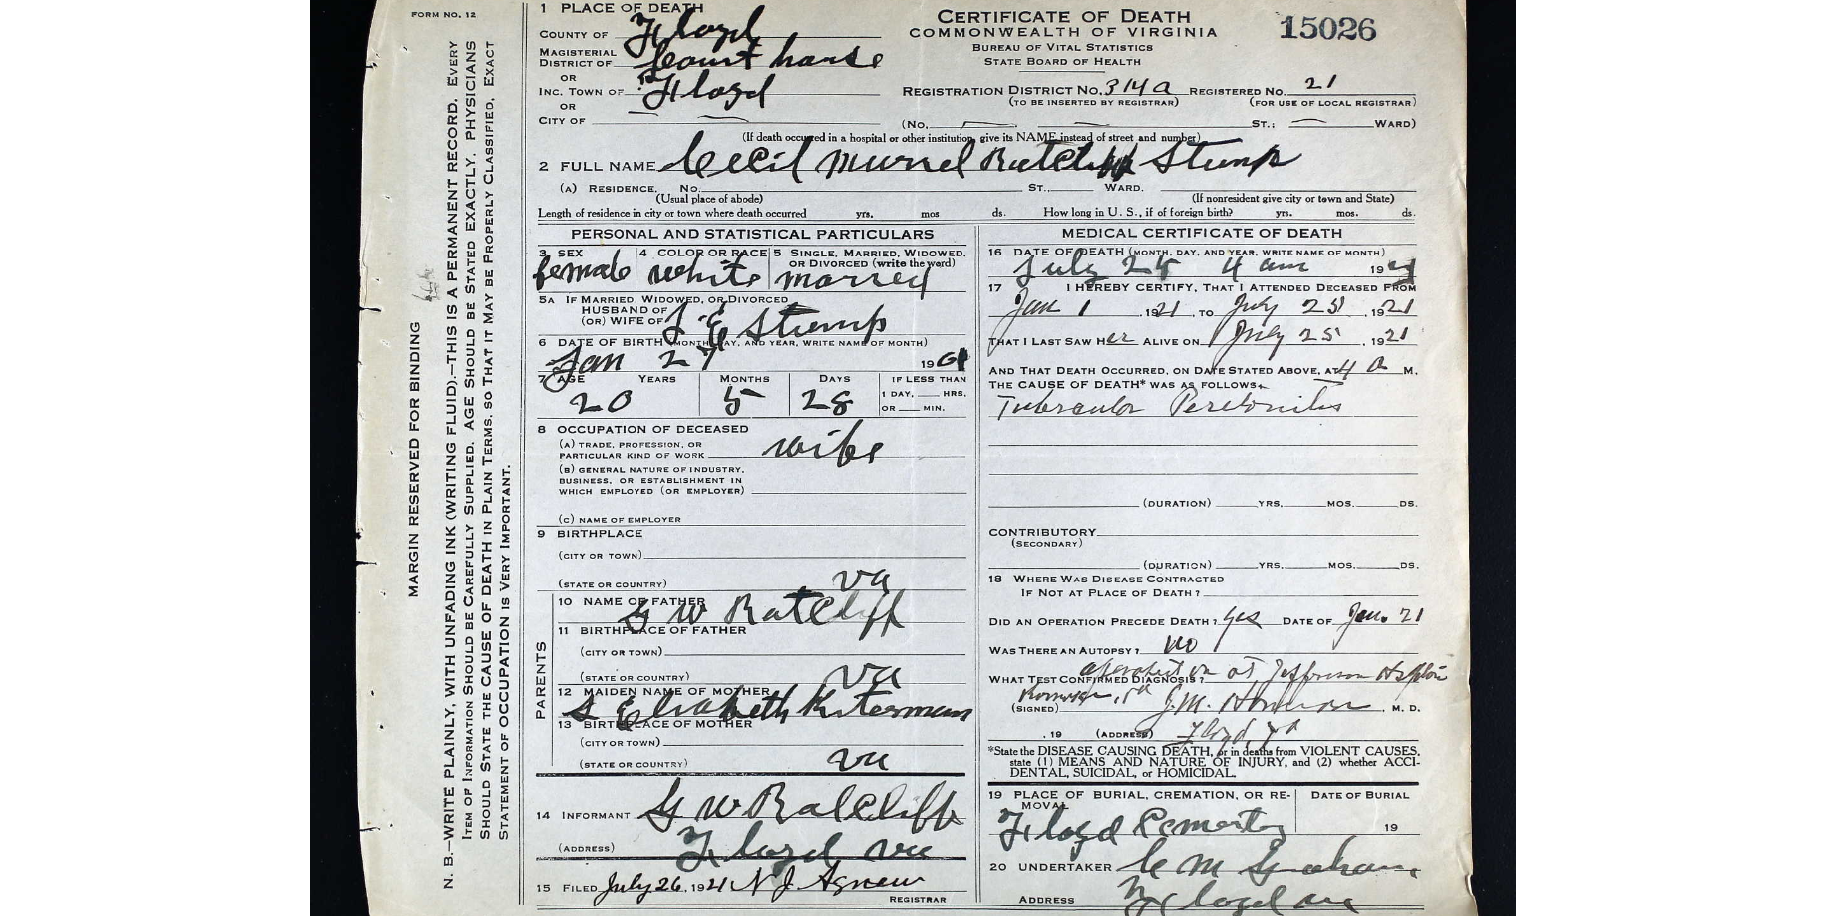 FORM NO. 12
MARGIN RESERVED FOR BINDING
N. B.—WRITE PLAINLY, WITH UNFADING INK (WRITING FLUID).—THIS IS A PERMANENT RECORD. EVERY
ITEM OF INFORMATION SHOULD BE CAREFULLY SUPPLIED. AGE SHOULD BE STATED EXACTLY. PHYSICIANS
SHOULD STATE THE CAUSE OF DEATH IN PLAIN TERMS, SO THAT IT MAY BE PROPERLY CLASSIFIED. EXACT
STATEMENT OF OCCUPATION IS VERY IMPORTANT.
1 PLACE OF DEATH
COUNTY OF Floyd
MAGISTERIAL DISTRICT OF Court house
OR
INC. TOWN OF Floyd
OR
CITY OF
CERTIFICATE OF DEATH
COMMONWEALTH OF VIRGINIA
BUREAU OF VITAL STATISTICS
STATE BOARD OF HEALTH
15026
REGISTRATION DISTRICT NO. 314a REGISTERED NO. 21
(TO BE INSERTED BY REGISTRAR) (FOR USE OF LOCAL REGISTRAR)
(NO. ST.; WARD)
(If death occurred in a hospital or other institution, give its NAME instead of street and number)
2 FULL NAME Cecil Murrel Ratcliff Stump
(A) RESIDENCE. No. ST. WARD.
(Usual place of abode) (If nonresident give city or town and State)
Length of residence in city or town where death occurred yrs. mos ds. How long in U. S., if of foreign birth? yrs. mos. ds.
PERSONAL AND STATISTICAL PARTICULARS
3 SEX 4 COLOR OR RACE 5 SINGLE, MARRIED, WIDOWED, OR DIVORCED (write the word)
female white married
5A IF MARRIED WIDOWED, OR DIVORCED
HUSBAND OF
(OR) WIFE OF E Stump
6 DATE OF BIRTH (MONTH, DAY, AND YEAR, WRITE NAME OF MONTH)
Jan 27 1901
7 AGE YEARS MONTHS DAYS IF LESS THAN
1 DAY, HRS.
OR MIN.
20 5 28
8 OCCUPATION OF DECEASED
(A) TRADE, PROFESSION, OR
PARTICULAR KIND OF WORK wife
(B) GENERAL NATURE OF INDUSTRY,
BUSINESS, OR ESTABLISHMENT IN
WHICH EMPLOYED (OR EMPLOYER)
(C) NAME OF EMPLOYER
9 BIRTHPLACE
(CITY OR TOWN)
(STATE OR COUNTRY) va
PARENTS
10 NAME OF FATHER G W Ratcliff
11 BIRTHPLACE OF FATHER
(CITY OR TOWN)
(STATE OR COUNTRY) va
12 MAIDEN NAME OF MOTHER
S Elizabeth
13 BIRTHPLACE OF MOTHER
(CITY OR TOWN)
(STATE OR COUNTRY) va
14 INFORMANT G W Ratcliff
(ADDRESS) Floyd va
15 FILED July 26, 1921 N J Agnew
REGISTRAR
MEDICAL CERTIFICATE OF DEATH
16 DATE OF DEATH (MONTH, DAY, AND YEAR, WRITE NAME OF MONTH)
July 25 4 am 1921
17 I HEREBY CERTIFY, THAT I ATTENDED DECEASED FROM
Jan 1, 1921, TO July 25, 1921
THAT I LAST SAW Her ALIVE ON July 25, 1921
AND THAT DEATH OCCURRED, ON DATE STATED ABOVE, AT 4 a M.
THE CAUSE OF DEATH* WAS AS FOLLOWS.
Tubercular Peretonitis
(DURATION) YRS. MOS. DS.
CONTRIBUTORY
(SECONDARY)
(DURATION) YRS. MOS. DS.
18 WHERE WAS DISEASE CONTRACTED
IF NOT AT PLACE OF DEATH?
DID AN OPERATION PRECEDE DEATH? yes DATE OF Jan. 21
WAS THERE AN AUTOPSY? no
WHAT TEST CONFIRMED DIAGNOSIS? operation at Jefferson
(SIGNED) J.M. M. D.
, 19 (ADDRESS) Floyd, Va
*State the DISEASE CAUSING DEATH, or in deaths from VIOLENT CAUSES,
state (1) MEANS AND NATURE OF INJURY, and (2) whether ACCI-
DENTAL, SUICIDAL, or HOMICIDAL.
19 PLACE OF BURIAL, CREMATION, OR RE-
MOVAL DATE OF BURIAL
Floyd 19
20 UNDERTAKER C M Graham
ADDRESS Floyd va